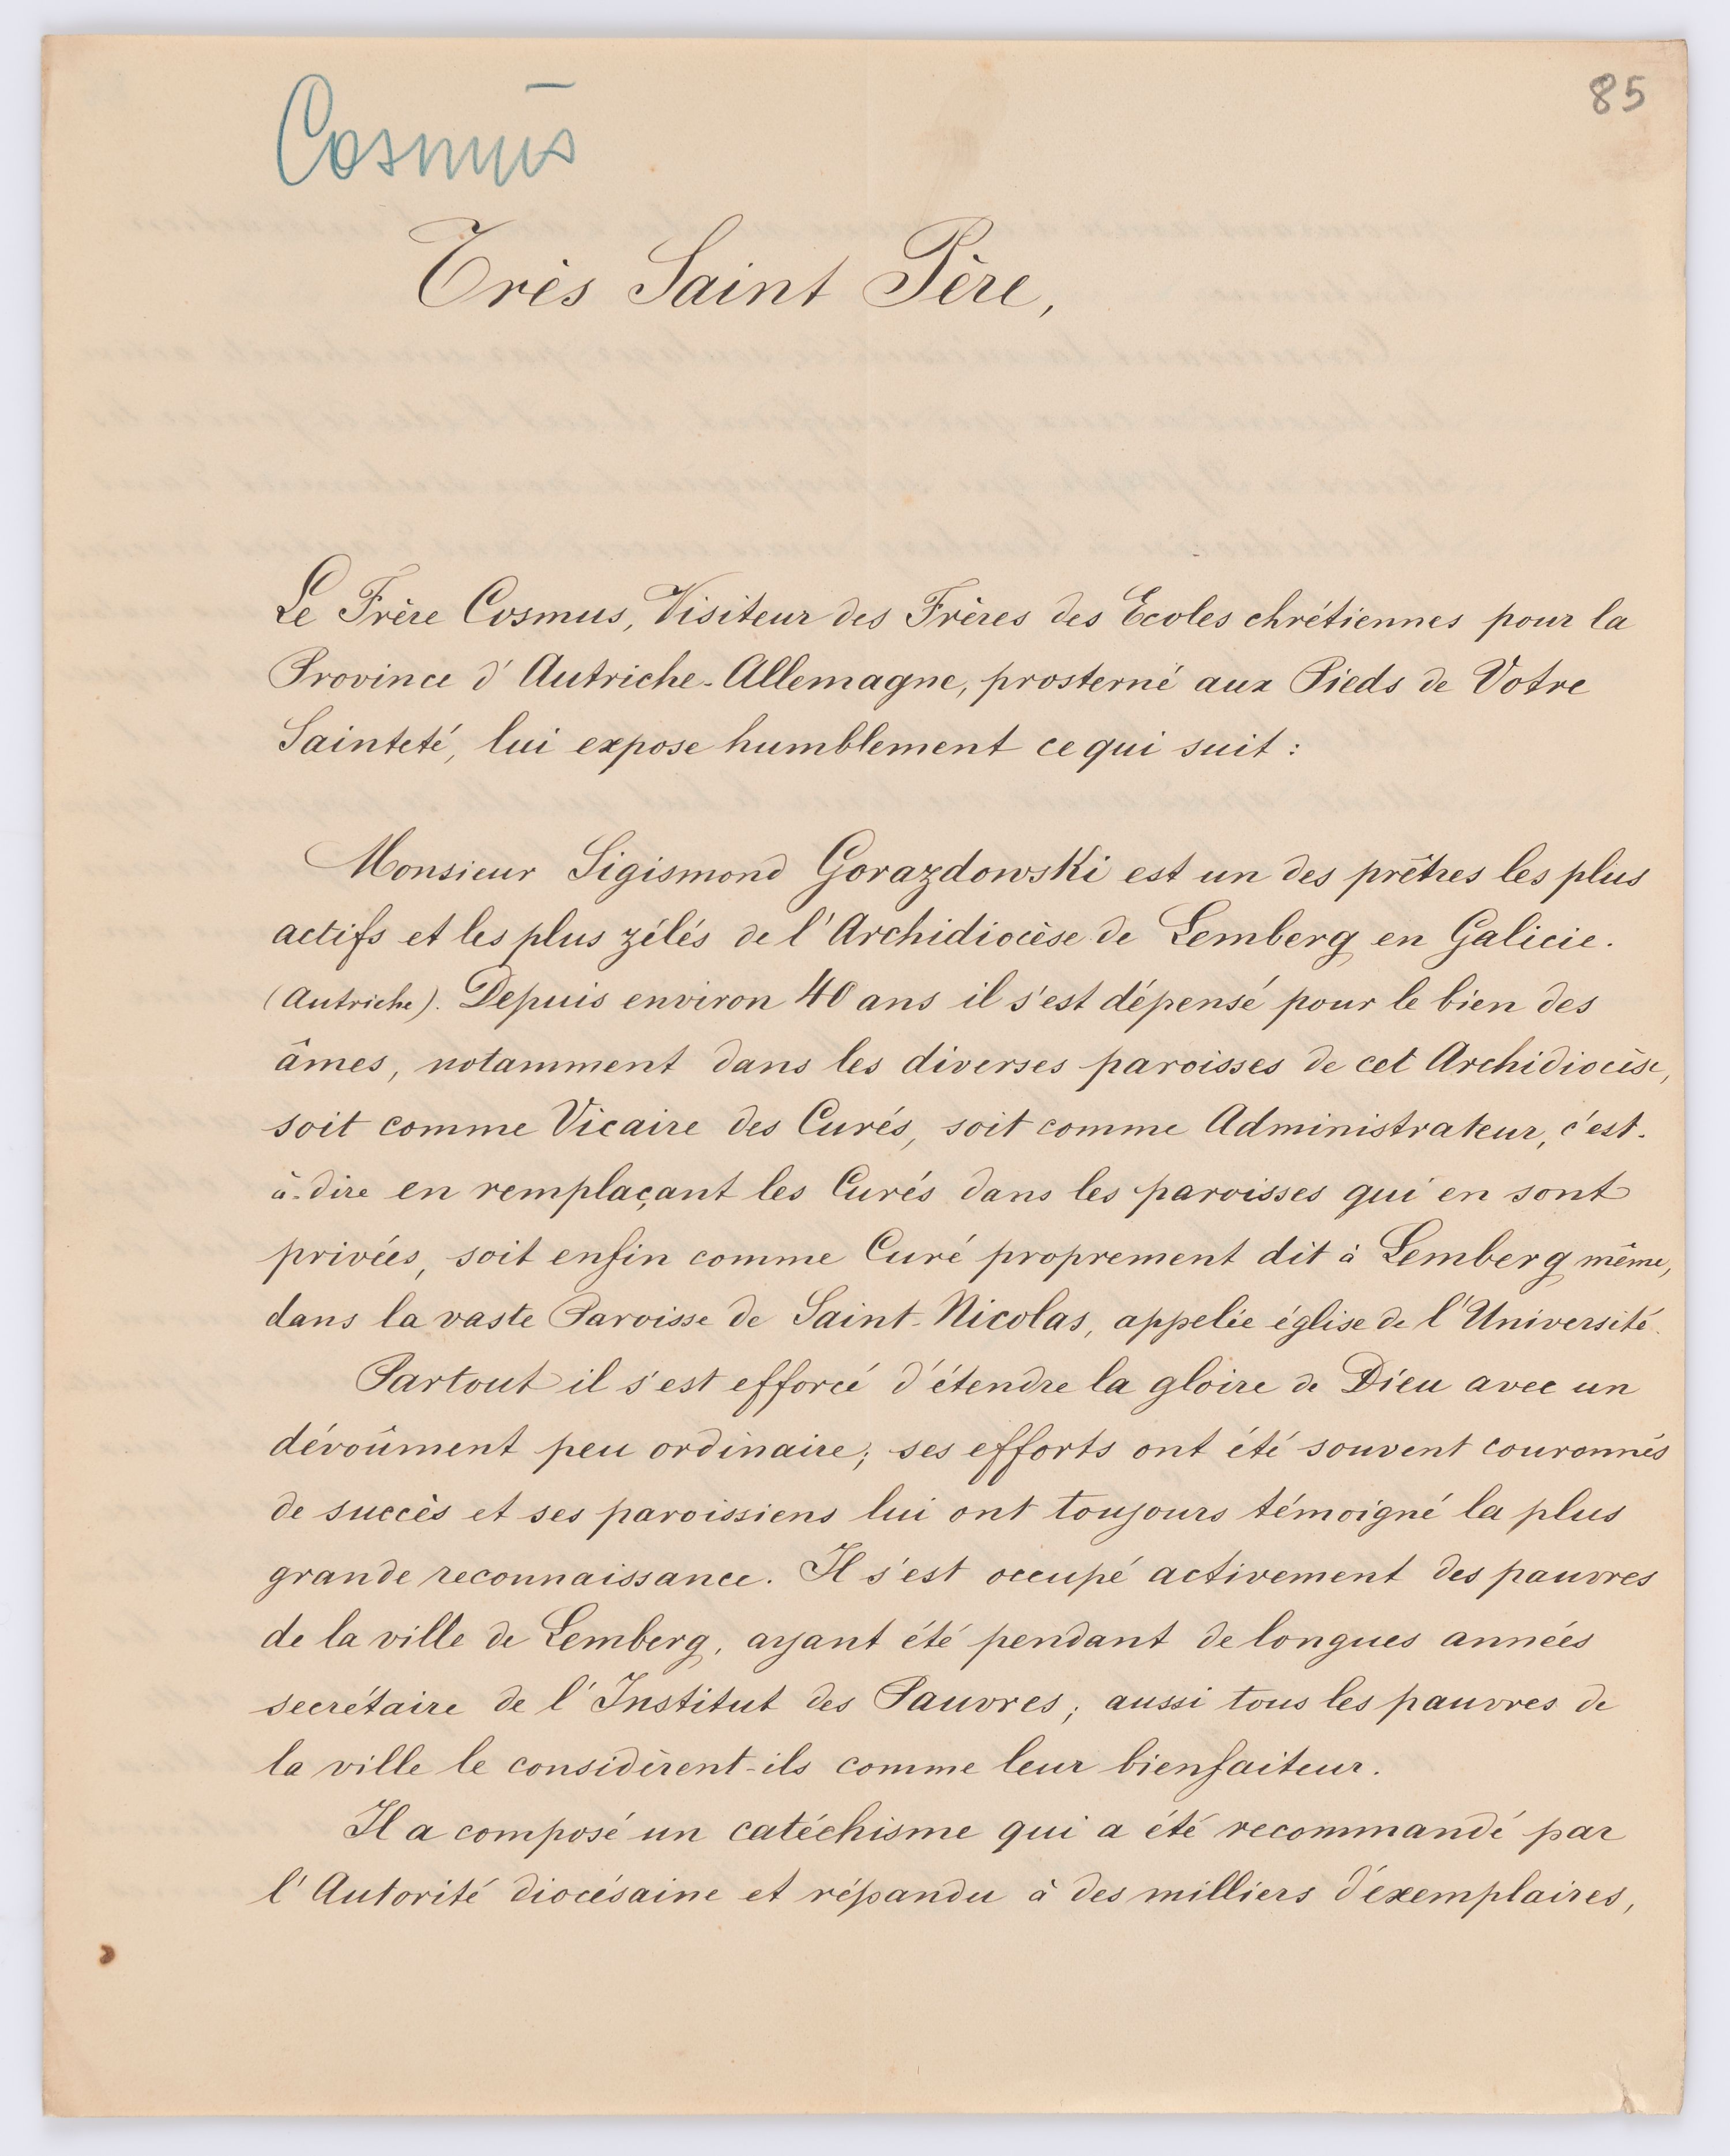 85
Cosmus
Très Saint Père,
Le Frère Cosmus, Visiteur des Frères des Ecoles chrétiennes pour la
Province d'Autriche-Allemagne, prosterné aux Pieds de Votre
Sainteté, lui expose humblement ce qui suit :
Monsieur Sigismond Gorazdowski est un des prêtres les plus
actifs et les plus zélés de l'Archidiocèse de Lemberg en Galicie.
(Autriche). Depuis environ 40 ans il s'est dépensé pour le bien des
âmes, notamment dans les diverses paroisses de cet Archidiocèse,
soit comme Vicaire des Curés, soit comme Administrateur, c'est-
à-dire en remplaçant les Curés dans les paroisses qui en sont
privées, soit enfin comme Curé proprement dit à Lemberg même,
dans la vaste Paroisse de Saint-Nicolas, appelée église de l'Université.
Partout il s'est efforcé d'étendre la gloire de Dieu avec un
dévoûment peu ordinaire; ses efforts ont été souvent couronnés
de succès et ses paroissiens lui ont toujours témoigné la plus
grande reconnaissance. Il s'est occupé activement des pauvres
de la ville de Lemberg, ayant été pendant de longues années
secrétaire de l'Institut des Pauvres; aussi tous les pauvres de
la ville le considèrent-ils comme leur bienfaiteur.
Il a composé un catéchisme qui a été recommandé par
l'Autorité diocésaine et répandu à des milliers d'exemplaires,